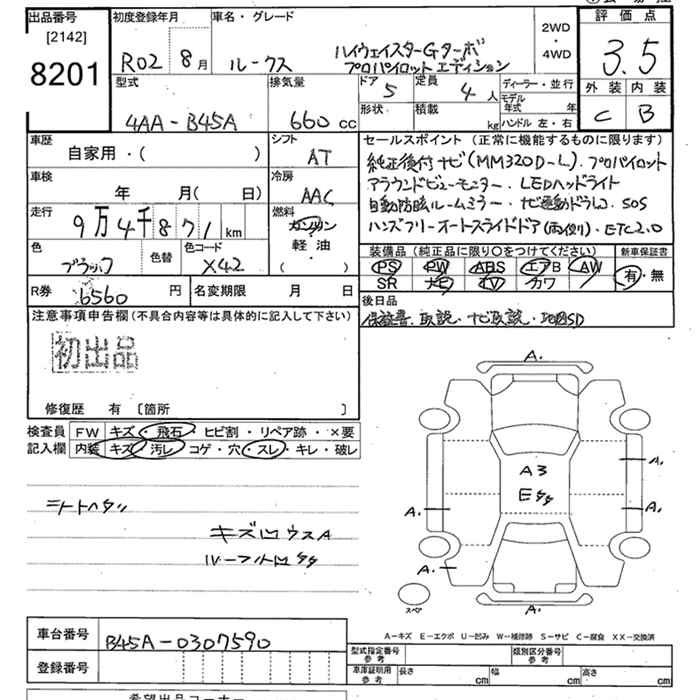 出品番号
[2142]
8201
初度登録年月
R02 8月
車名・グレード
ルークス
ハイウェイスターGターボ
プロパイロットエディション
2WD
・
4WD
評価点
3.5
外装 内装
C B
型式
4AA-B45A
排気量
660 cc
ドア
5
定員
4人
形状
積載
kg
ディーラー・並行
モデル年式 年
ハンドル 左・右
車歴
自家用・( )
シフト
AT
車検
年 月( 日)
冷房
AAC
走行
9万4千871 km
燃料
ガソリン
軽油
( ・ )
色
ブラック
色替
色コード
X42
セールスポイント(正常に機能するものに限ります)
純正後付ナビ(MM320D-L)・プロパイロット
アラウンドビューモニター・LEDヘッドライト
自動防眩ルームミラー・ナビ連動ドラレコ・SOS
ハンズフリーオートスライドドア(両側)・ETC2.0
装備品(純正品に限り○をつけてください)
新車保証書
PS PW ABS エアB AW
SR ナビ TV カワ /
有・無
R券 6560 円
名変期限 月 日
後日品
保証書・取説・ナビ取説・地図SD
注意事項申告欄(不具合内容等は具体的に記入して下さい)
初出品
修復歴 有 〔箇所 〕
検査員記入欄
FW キズ・飛石・ヒビ割・リペア跡・×要
内装 キズ・汚レ・コゲ・穴・スレ・キレ・破レ
シートヘタリ
キズ凹ウスA
ルーフ凹タタ
A.
A3
Eタタ
A.
A.
A.
A.
スペア
A.
A-キズ E-エクボ U-凹み W-補修跡 S-サビ C-腐食 XX-交換済
車台番号
B45A-0307590
登録番号
型式指定番号
参考
類別区分番号
参考
車庫証明用
参考
長さ cm
幅 cm
高さ cm
希望出品コーナー